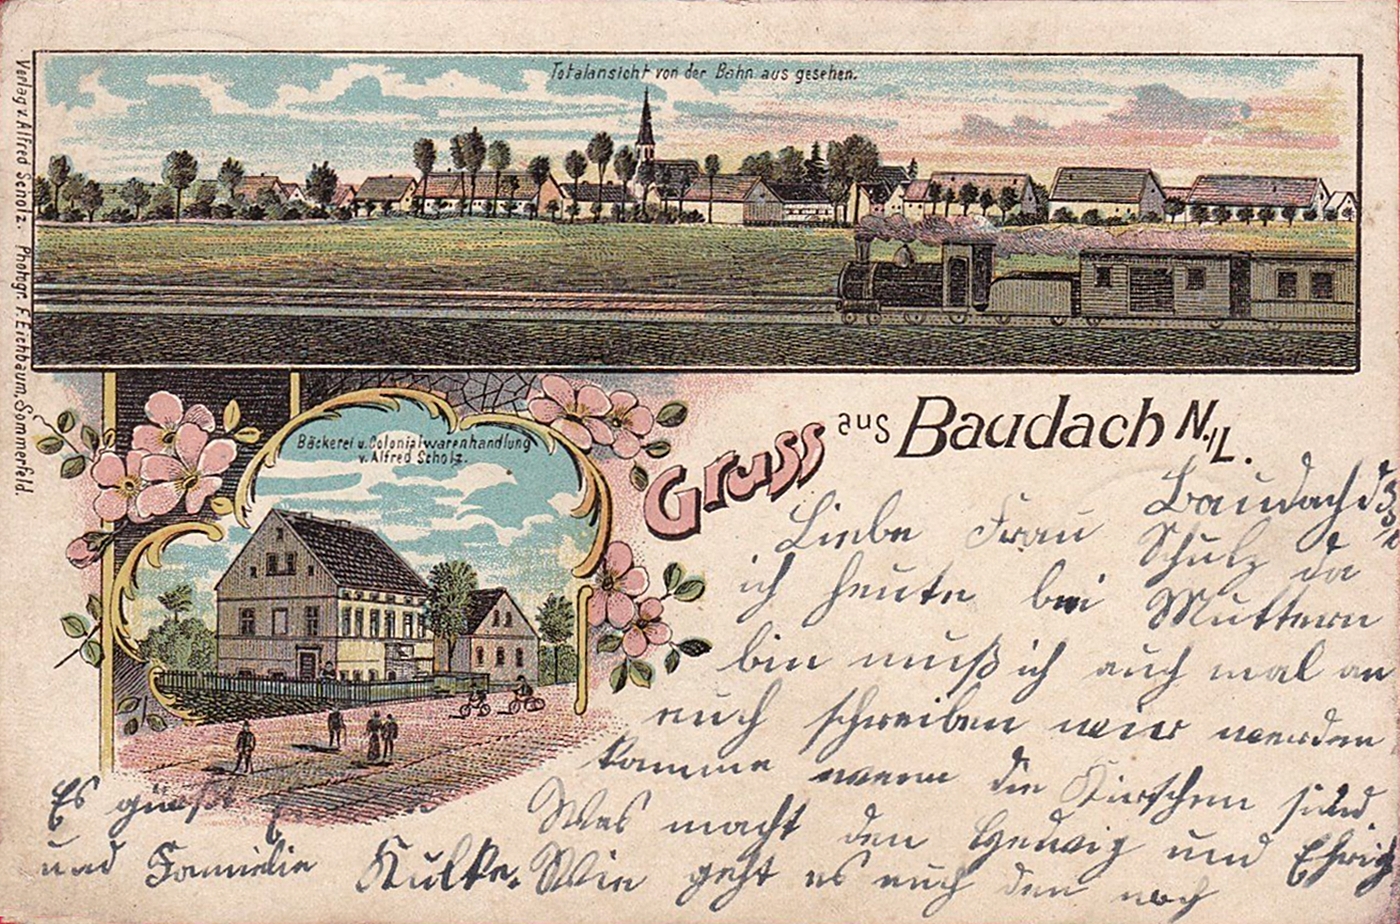 Totalansicht von der Bahn aus gesehen.
Verlag v. Alfred Scholz. Photogr. F. Eichbaum, Sommerfeld.
Bäckerei u. Colonialwarenhandlung
v. Alfred Scholz.
Gruss aus Baudach N./L.
Baudach d
Liebe Frau Schulz da
ich heute bei Muttern
bin muß ich auch mal an
euch schreiben wir werden
komme wenn die Kirschen sind
Was macht den Hedwig und
Wie geht es euch den noch
Es grüßt
und Familie Kulke.